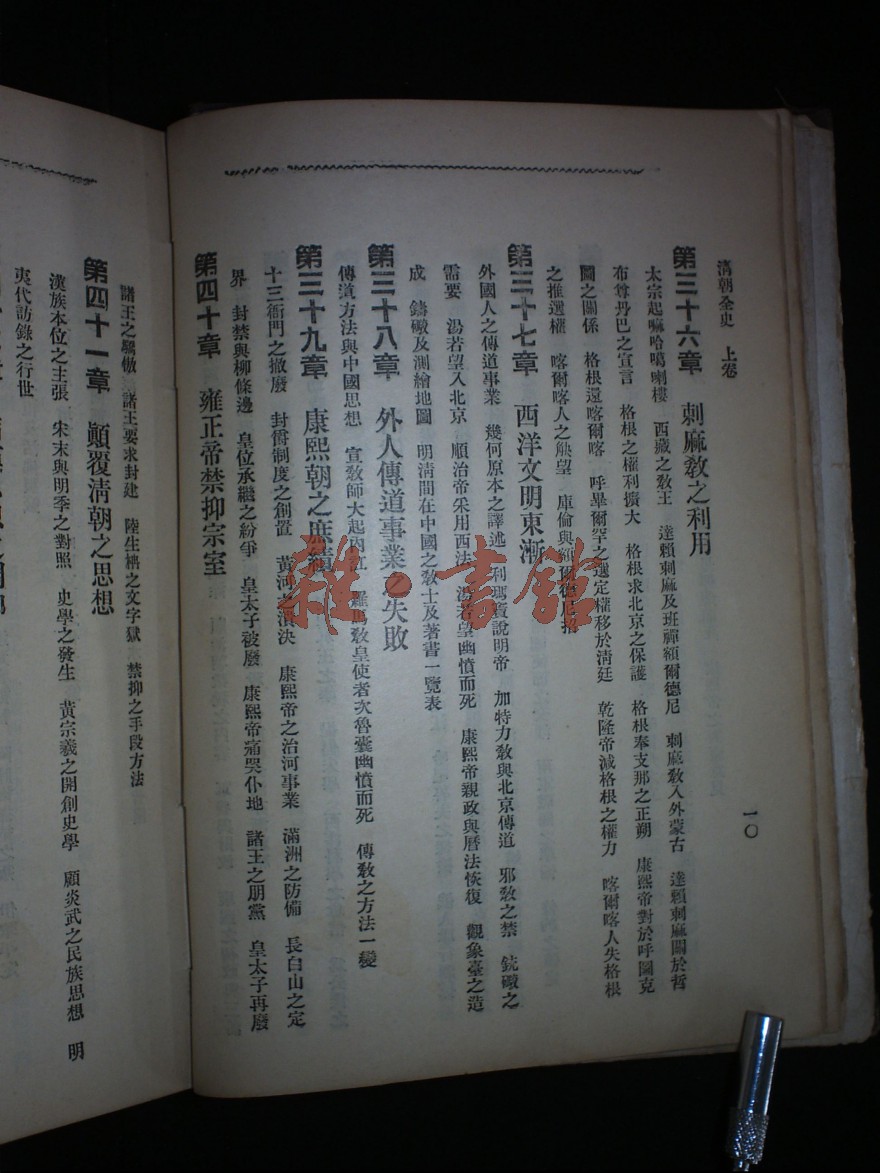 清朝全史　上卷
一〇
第三十六章　刺麻教之利用
太宗起嘛哈噶喇樓　西藏之教王　達賴刺麻及班禪額爾德尼　刺麻教入外蒙古　達賴刺麻關於哲
布尊丹巴之宣言　格根之權利擴大　格根求北京之保護　格根奉支那之正朔　康熙帝對於呼圖克
圖之關係　格根還喀爾喀　呼畢爾罕之選定權移於淸廷　乾隆帝減格根之權力　喀爾喀人失格根
之推選權　喀爾喀人之觖望　庫倫與額爾德尼招
第三十七章　西洋文明東漸
外國人之傳道事業　幾何原本之譯述　利瑪竇說明帝　加特力教與北京傳道　邪教之禁　銃礮之
需要　湯若望入北京　順治帝采用西法　湯若望幽憤而死　康熙帝親政與曆法恢復　觀象臺之造
成　鑄礮及測繪地圖　明清間在中國之教士及著書一覽表
第三十八章　外人傳道事業之失敗
傳道方法與中國思想　宣教師大起內訌　羅馬教皇使者次魯囊幽憤而死　傳教之方法一變
第三十九章　康熙朝之庶績
十三衙門之撤廢　封爵制度之創置　黃河之潰決　康熙帝之治河事業　滿洲之防備　長白山之定
界　封禁與柳條邊　皇位承繼之紛爭　皇太子被廢　康熙帝痛哭仆地　諸王之朋黨　皇太子再廢
第四十章　雍正帝禁抑宗室
諸王之驕傲　諸王要求封建　陸生枏之文字獄　禁抑之手段方法
第四十一章　顚覆淸朝之思想
漢族本位之主張　宋末與明季之對照　史學之發生　黃宗羲之開創史學　顧炎武之民族思想　明
夷代訪錄之行世
雜·書館